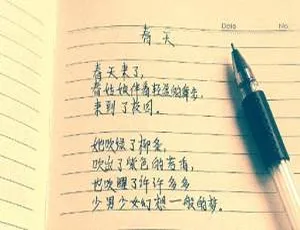 春天
Date No.
春天来了,
春姑娘伴着轻盈的舞步,
来到了校园。
她吹绿了柳条,
吹出了紫色的
也吹醒了许许多多
少男少女幻想一般的梦。